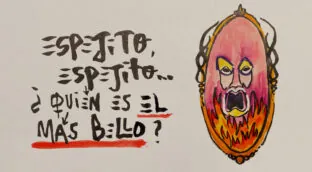 ESPEJITO,
ESPEJITO...
¿QUIÉN ES EL
MÁS BELLO?